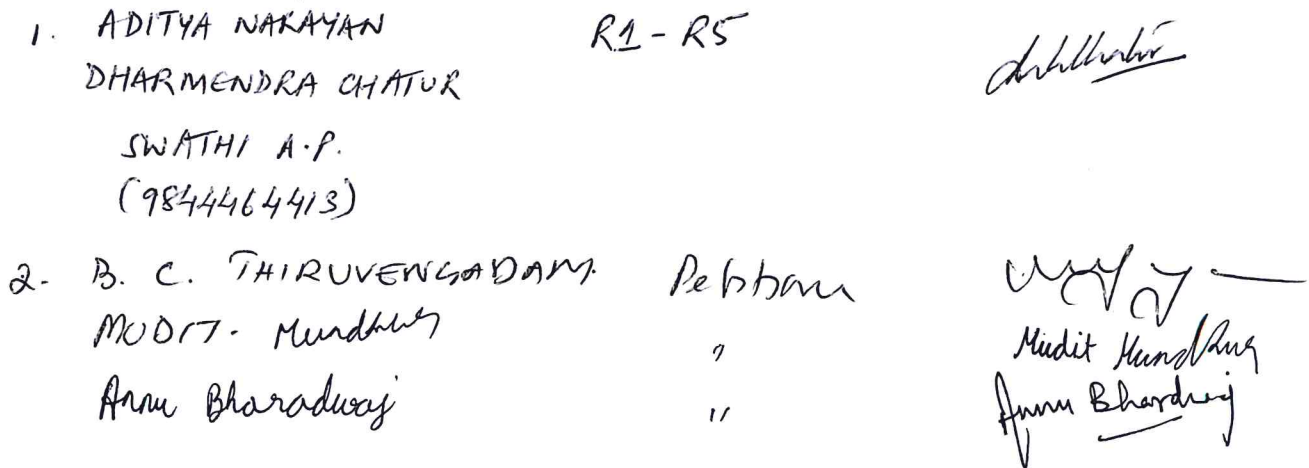 1. ADITYA NARAYAN R1 - R5
DHARMENDRA CHATUR
SWATHI A.P.
(9844464413)
2- B. C. THIRUVENGADAM.
MUDIT. Mundhra " Mudit Mundhra
Annu Bharadwaj " Annu Bhardwaj